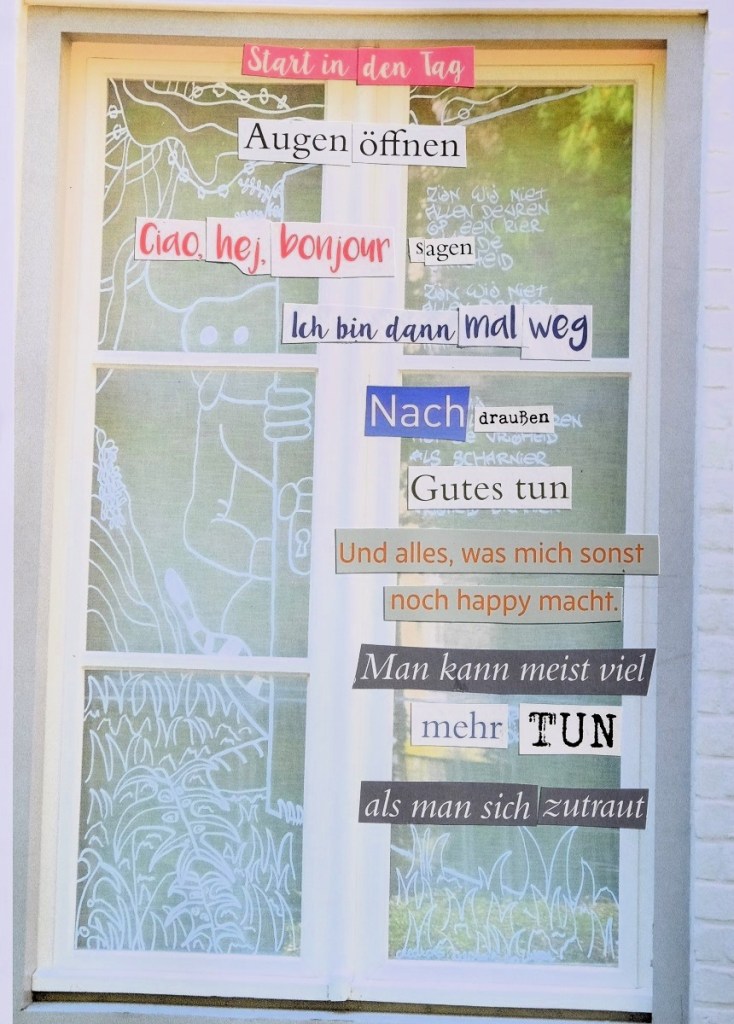 Start in den Tag
Augen öffnen
ZIJN WIJ NIET
ALLEN DEUREN
OP EEN KIER
Ciao, hej, bonjour sagen
ZIJN WIJ NIET
Ich bin dann mal weg
Nach draußen
ALS SCHARNIER
Gutes tun
Und alles, was mich sonst
noch happy macht.
Man kann meist viel
mehr TUN
als man sich zutraut